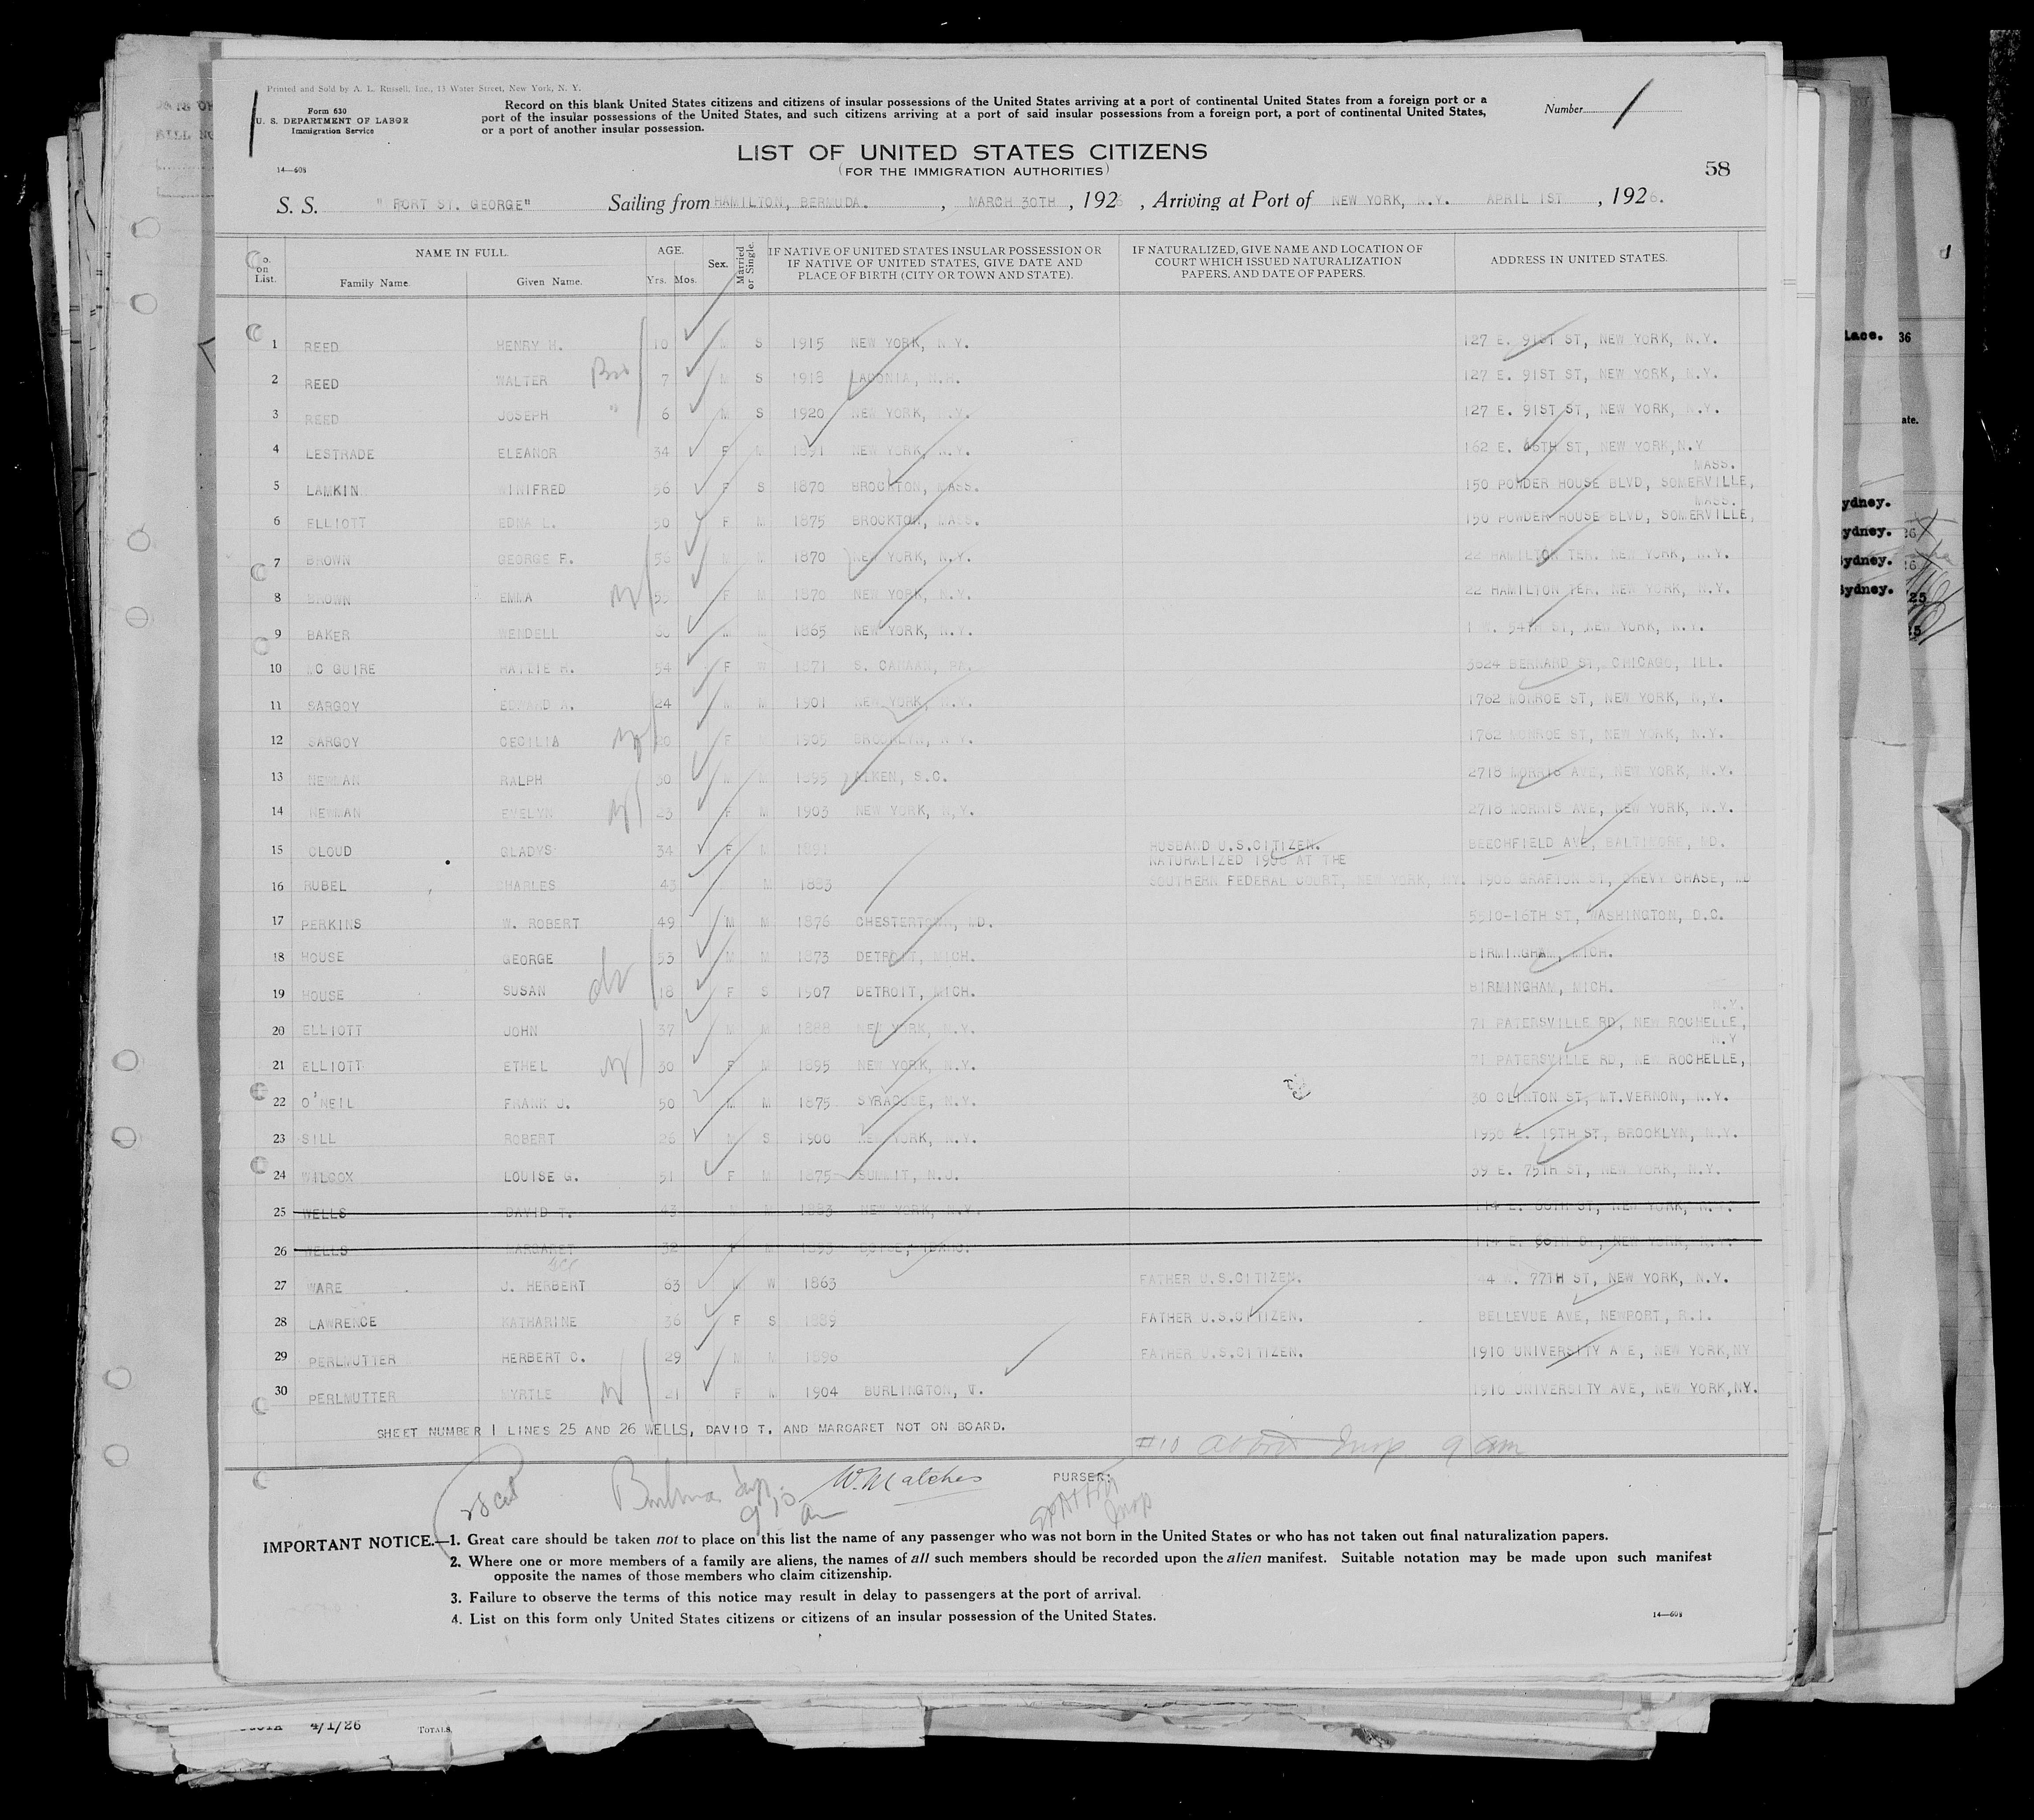 Printed and Sold by A. L. Russell, Inc., 13 Water Street, New York, N. Y.
Form 630
U. S. DEPARTMENT OF LABOR
Immigration Service
14—608
Record on this blank United States citizens and citizens of insular possessions of the United States arriving at a port of continental United States from a foreign port or a
port of the insular possessions of the United States, and such citizens arriving at a port of said insular possessions from a foreign port, a port of continental United States,
or a port of another insular possession.
Number 1
LIST OF UNITED STATES CITIZENS
(FOR THE IMMIGRATION AUTHORITIES)
58
S. S. "FORT ST. GEORGE" Sailing from HAMILTON, BERMUDA. , MARCH 30TH , 1926 , Arriving at Port of NEW YORK, N.Y. APRIL 1ST , 1926.
No. on List. NAME IN FULL. Family Name. Given Name. AGE. Yrs. Mos. Sex. Married or Single. IF NATIVE OF UNITED STATES INSULAR POSSESSION OR IF NATIVE OF UNITED STATES, GIVE DATE AND PLACE OF BIRTH (CITY OR TOWN AND STATE). IF NATURALIZED, GIVE NAME AND LOCATION OF COURT WHICH ISSUED NATURALIZATION PAPERS, AND DATE OF PAPERS. ADDRESS IN UNITED STATES.
1 REED HENRY H. 10 M S 1915 NEW YORK, N.Y. 127 E. 91ST ST, NEW YORK, N.Y.
2 REED WALTER Bro 7 M S 1918 LACONIA, N.H. 127 E. 91ST ST, NEW YORK, N.Y.
3 REED JOSEPH " 6 M S 1920 NEW YORK, N.Y. 127 E. 91ST ST, NEW YORK, N.Y.
4 LESTRADE ELEANOR 34 F M 1891 NEW YORK, N.Y. 162 E. ST, NEW YORK, N.Y
5 LAMKIN WINIFRED 56 F S 1870 BROCKTON, MASS. 150 POWDER HOUSE BLVD, SOMERVILLE, MASS.
6 ELLIOTT EDNA L. 50 F M 1875 BROCKTON, MASS. 150 POWDER HOUSE BLVD, SOMERVILLE, MASS.
7 BROWN GEORGE F. 56 M M 1870 NEW YORK, N.Y. 22 HAMILTON TER. NEW YORK, N.Y.
8 BROWN EMMA W 55 F M 1870 NEW YORK, N.Y. 22 HAMILTON TER. NEW YORK, N.Y.
9 BAKER WENDELL 60 M M 1865 NEW YORK, N.Y. 1 W. 54TH ST, NEW YORK, N.Y.
10 MC GUIRE HATTIE R. 54 F W 1871 S. CANAAN, PA. 3624 BERNARD ST, CHICAGO, ILL.
11 SARGOY EDWARD A. 24 M M 1901 NEW YORK, N.Y. 1762 MONROE ST, NEW YORK, N.Y.
12 SARGOY CECILIA W 20 F M 1905 BROOKLYN, N.Y. 1762 MONROE ST, NEW YORK, N.Y.
13 NEWMAN RALPH 30 M M 1895 AIKEN, S.C. 2718 MORRIS AVE, NEW YORK, N.Y.
14 NEWMAN EVELYN W 23 F M 1903 NEW YORK, N.Y. 2718 MORRIS AVE, NEW YORK, N.Y.
15 CLOUD GLADYS 34 F M 1891 HUSBAND U.S.CITIZEN. BEECHFIELD AVE, BALTIMORE, MD.
16 RUBEL CHARLES 43 M 1883 NATURALIZED 1908 AT THE SOUTHERN FEDERAL COURT, NEW YORK, NY. 1906 GRAFTON ST, CHEVY CHASE, MD
17 PERKINS W. ROBERT 49 M M 1876 CHESTERTOWN, MD. 5510-16TH ST, WASHINGTON, D.C.
18 HOUSE GEORGE 53 M M 1873 DETROIT, MICH. BIRMINGHAM, MICH.
19 HOUSE SUSAN 18 F S 1907 DETROIT, MICH. BIRMINGHAM, MICH.
20 ELLIOTT JOHN 37 M M 1888 NEW YORK, N.Y. 71 PATERSVILLE RD, NEW ROCHELLE, N.Y.
21 ELLIOTT ETHEL W 30 F M 1895 NEW YORK, N.Y. 71 PATERSVILLE RD, NEW ROCHELLE, N.Y
22 O'NEIL FRANK J. 50 M M 1875 SYRACUSE, N.Y. 30 CLINTON ST, MT.VERNON, N.Y.
23 SILL ROBERT 26 M S 1900 NEW YORK, N.Y. 1950 E. 19TH ST, BROOKLYN, N.Y.
24 WILCOX LOUISE G. 51 F M 1875 SUMMIT, N.J. 39 E. 75TH ST, NEW YORK, N.Y.
25 WELLS DAVID T. 43 M M 1883 NEW YORK, N.Y. 114 E. ST, NEW YORK, N.Y.
26 WELLS MARGARET 32 F M 1893 BOISE, IDAHO. 114 E. ST, NEW YORK, N.Y.
27 WARE J. HERBERT 63 M W 1863 FATHER U.S.CITIZEN. 44 W. 77TH ST, NEW YORK, N.Y.
28 LAWRENCE KATHARINE 36 F S 1889 FATHER U.S.CITIZEN. BELLEVUE AVE, NEWPORT, R.I.
29 PERLMUTTER HERBERT C. 29 M M 1896 FATHER U.S.CITIZEN. 1910 UNIVERSITY AVE, NEW YORK,NY
30 PERLMUTTER MYRTLE W 21 F M 1904 BURLINGTON, V. 1910 UNIVERSITY AVE, NEW YORK,NY.
SHEET NUMBER 1 LINES 25 AND 26 WELLS, DAVID T. AND MARGARET NOT ON BOARD.
#10 Insp. 9 am
28 cit
Insp.
W. Matches
PURSER:
Insp
IMPORTANT NOTICE.—1. Great care should be taken not to place on this list the name of any passenger who was not born in the United States or who has not taken out final naturalization papers.
2. Where one or more members of a family are aliens, the names of all such members should be recorded upon the alien manifest. Suitable notation may be made upon such manifest
opposite the names of those members who claim citizenship.
3. Failure to observe the terms of this notice may result in delay to passengers at the port of arrival.
4. List on this form only United States citizens or citizens of an insular possession of the United States.
14—608
4/1/26 TOTALS
lace. 36
ate.
ydney.
ydney. 26
Sydney. 16
Sydney. 25